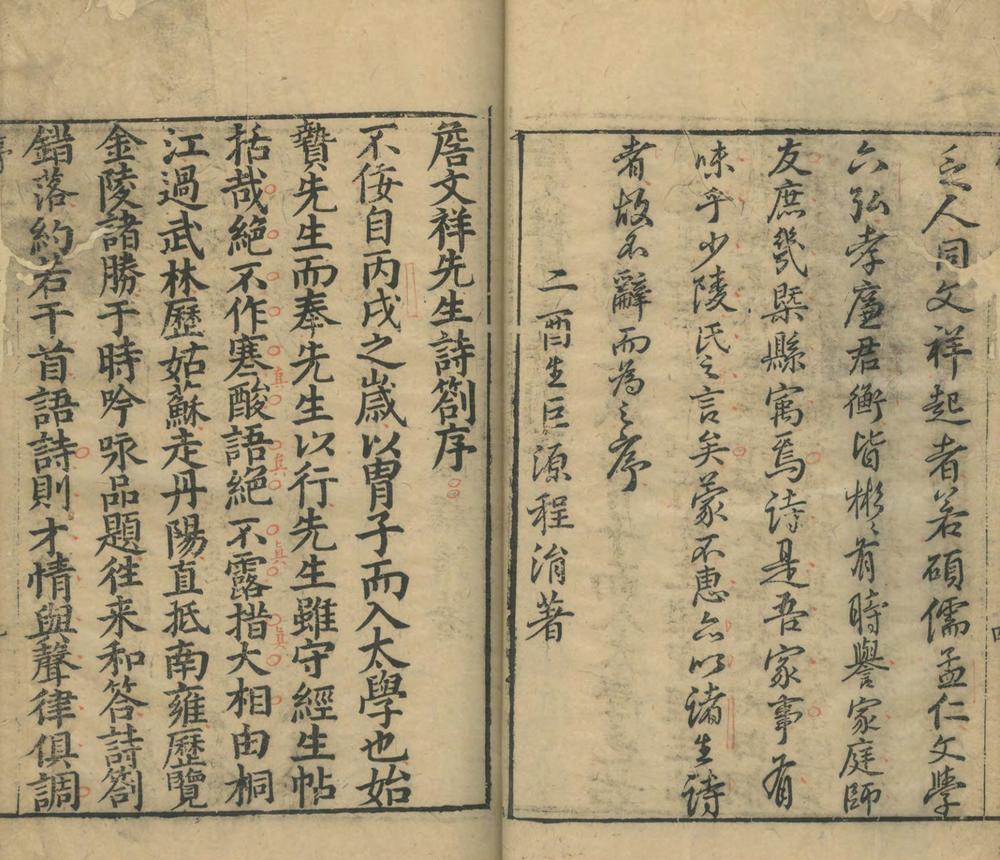 乏人同文祥起者若碩儒孟仁文學
六弘孝廉君衡皆彬〻有時譽家庭師
友庶幾槩縣寓焉詩是吾家事有
味乎少陵氏之言矣蒙不恵亦以諸生詩
者故不辭而為之序
二酉生巨源程涓著
詹文祥先生詩劄序
不佞自丙戌之嵗以胄子而入太學也始
贄先生而奉先生以行先生雖守經生帖
括哉絕不作寒酸語絕不露措大相由桐
江過武林歷姑蘇走丹陽直抵南雍歷覽
金陵諸勝于時吟咏品題徃来和答詩劄
錯落約若干首語詩則才情與聲律俱調
真
真
真
真